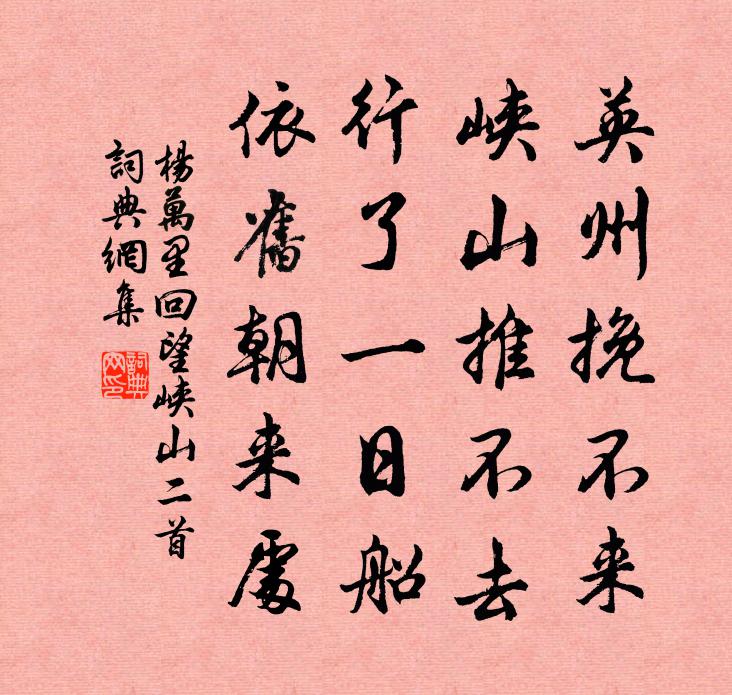 英州挽不来
峡山推不去
行了一日船
依舊朝来處
楊萬里回望峡山二首
詞典網集
詞典網印